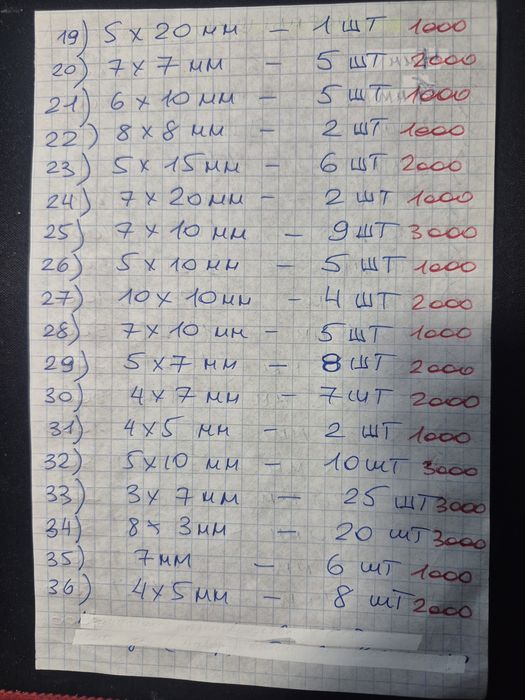 19) 5 x 20 мм - 1 шт 1000
20) 7 x 7 мм - 5 шт 2000
21) 6 x 10 мм - 5 шт 1000
22) 8 x 8 мм - 2 шт 1000
23) 5 x 15 мм - 6 шт 2000
24) 7 x 20 мм - 2 шт 1000
25) 7 x 10 мм - 9 шт 3000
26) 5 x 10 мм - 5 шт 1000
27) 10 x 10 мм - 4 шт 2000
28) 7 x 10 мм - 5 шт 1000
29) 5 x 7 мм - 8 шт 2000
30) 4 x 7 мм - 7 шт 2000
31) 4 x 5 мм - 2 шт 1000
32) 5 x 10 мм - 10 шт 3000
33) 3 x 7 мм - 25 шт 3000
34) 8 x 3 мм - 20 шт 3000
35) 7 мм - 6 шт 1000
36) 4 x 5 мм - 8 шт 2000